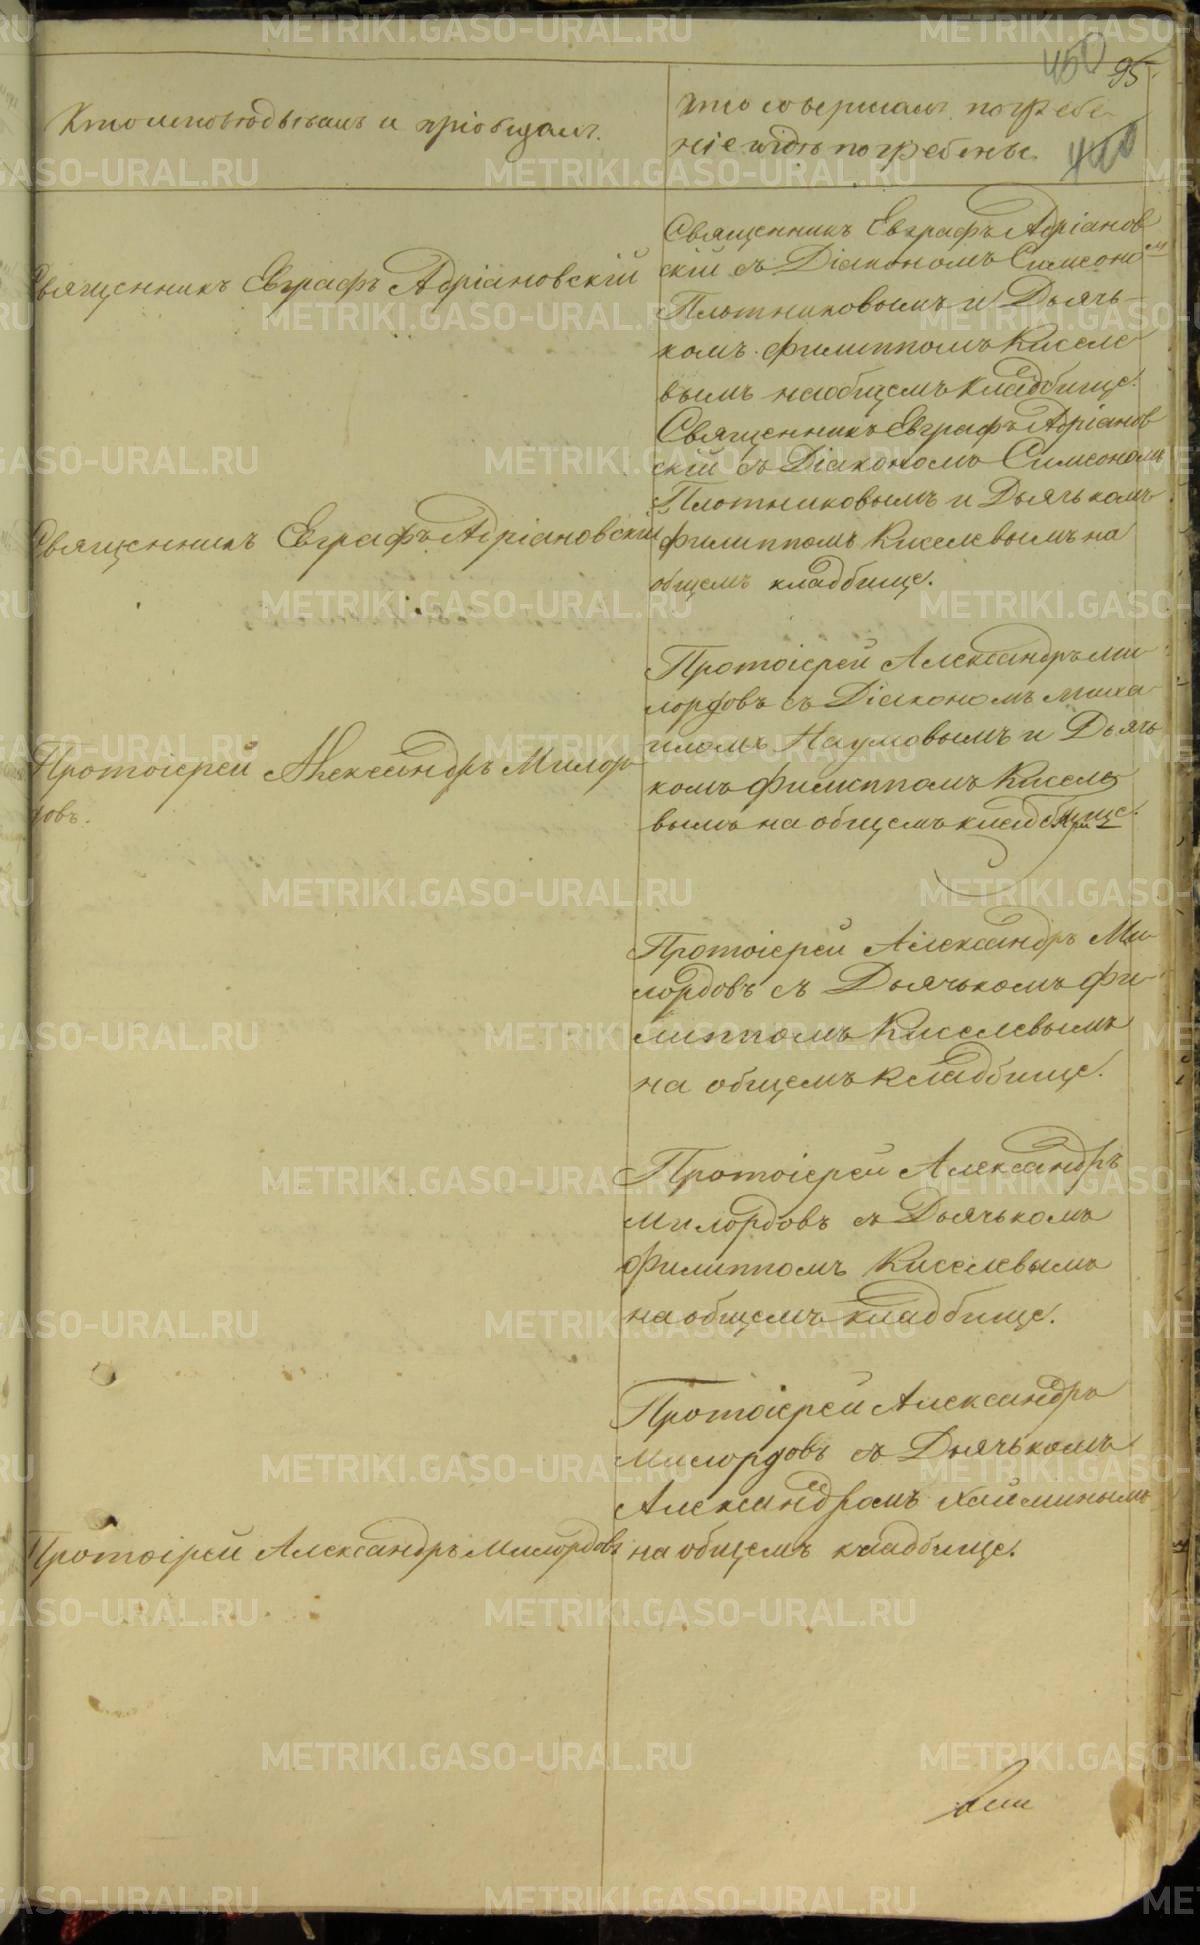 450 95.
Кто исповѣдывалъ и пріобщалъ.
кто совершалъ погребе-
ніе и гдѣ погребены.
Священникъ Евграфъ Адріановскій
Священникъ Евграфъ Адріанов
скій съ Діакономъ Симеономъ
Плотниковымъ и Дьячь-
комъ Филиппомъ Киселе
вымъ на общемъ кладбище.
Священникъ Евграфъ Адріановскій
Священникъ Евграфъ Адріанов
скій съ Діакономъ Симеономъ
Плотниковымъ и Дьячькомъ
Филиппомъ Киселевымъ на
общемъ кладбище.
Протоіерей Александръ Милор-
довъ.
Протоіерей Александръ Ми-
лордовъ съ Діакономъ Миха-
иломъ Наумовымъ и Дьячь
комъ Филиппомъ Киселе
вымъ на общемъ кладбище.
Протоіерей Александръ Ми-
лордовъ съ Дьячькомъ Фи-
липпомъ Киселевымъ
на общемъ кладбище.
Протоіерей Александръ
Милордовъ съ Дьячькомъ
Филиппомъ Киселевымъ
на общемъ кладбище.
Протоіерей Александръ Милордовъ
Протоіерей Александръ
Милордовъ съ Дьячькомъ
Александромъ Хайминымъ
на общемъ кладбище.
METRIKI.GASO-URAL.RU